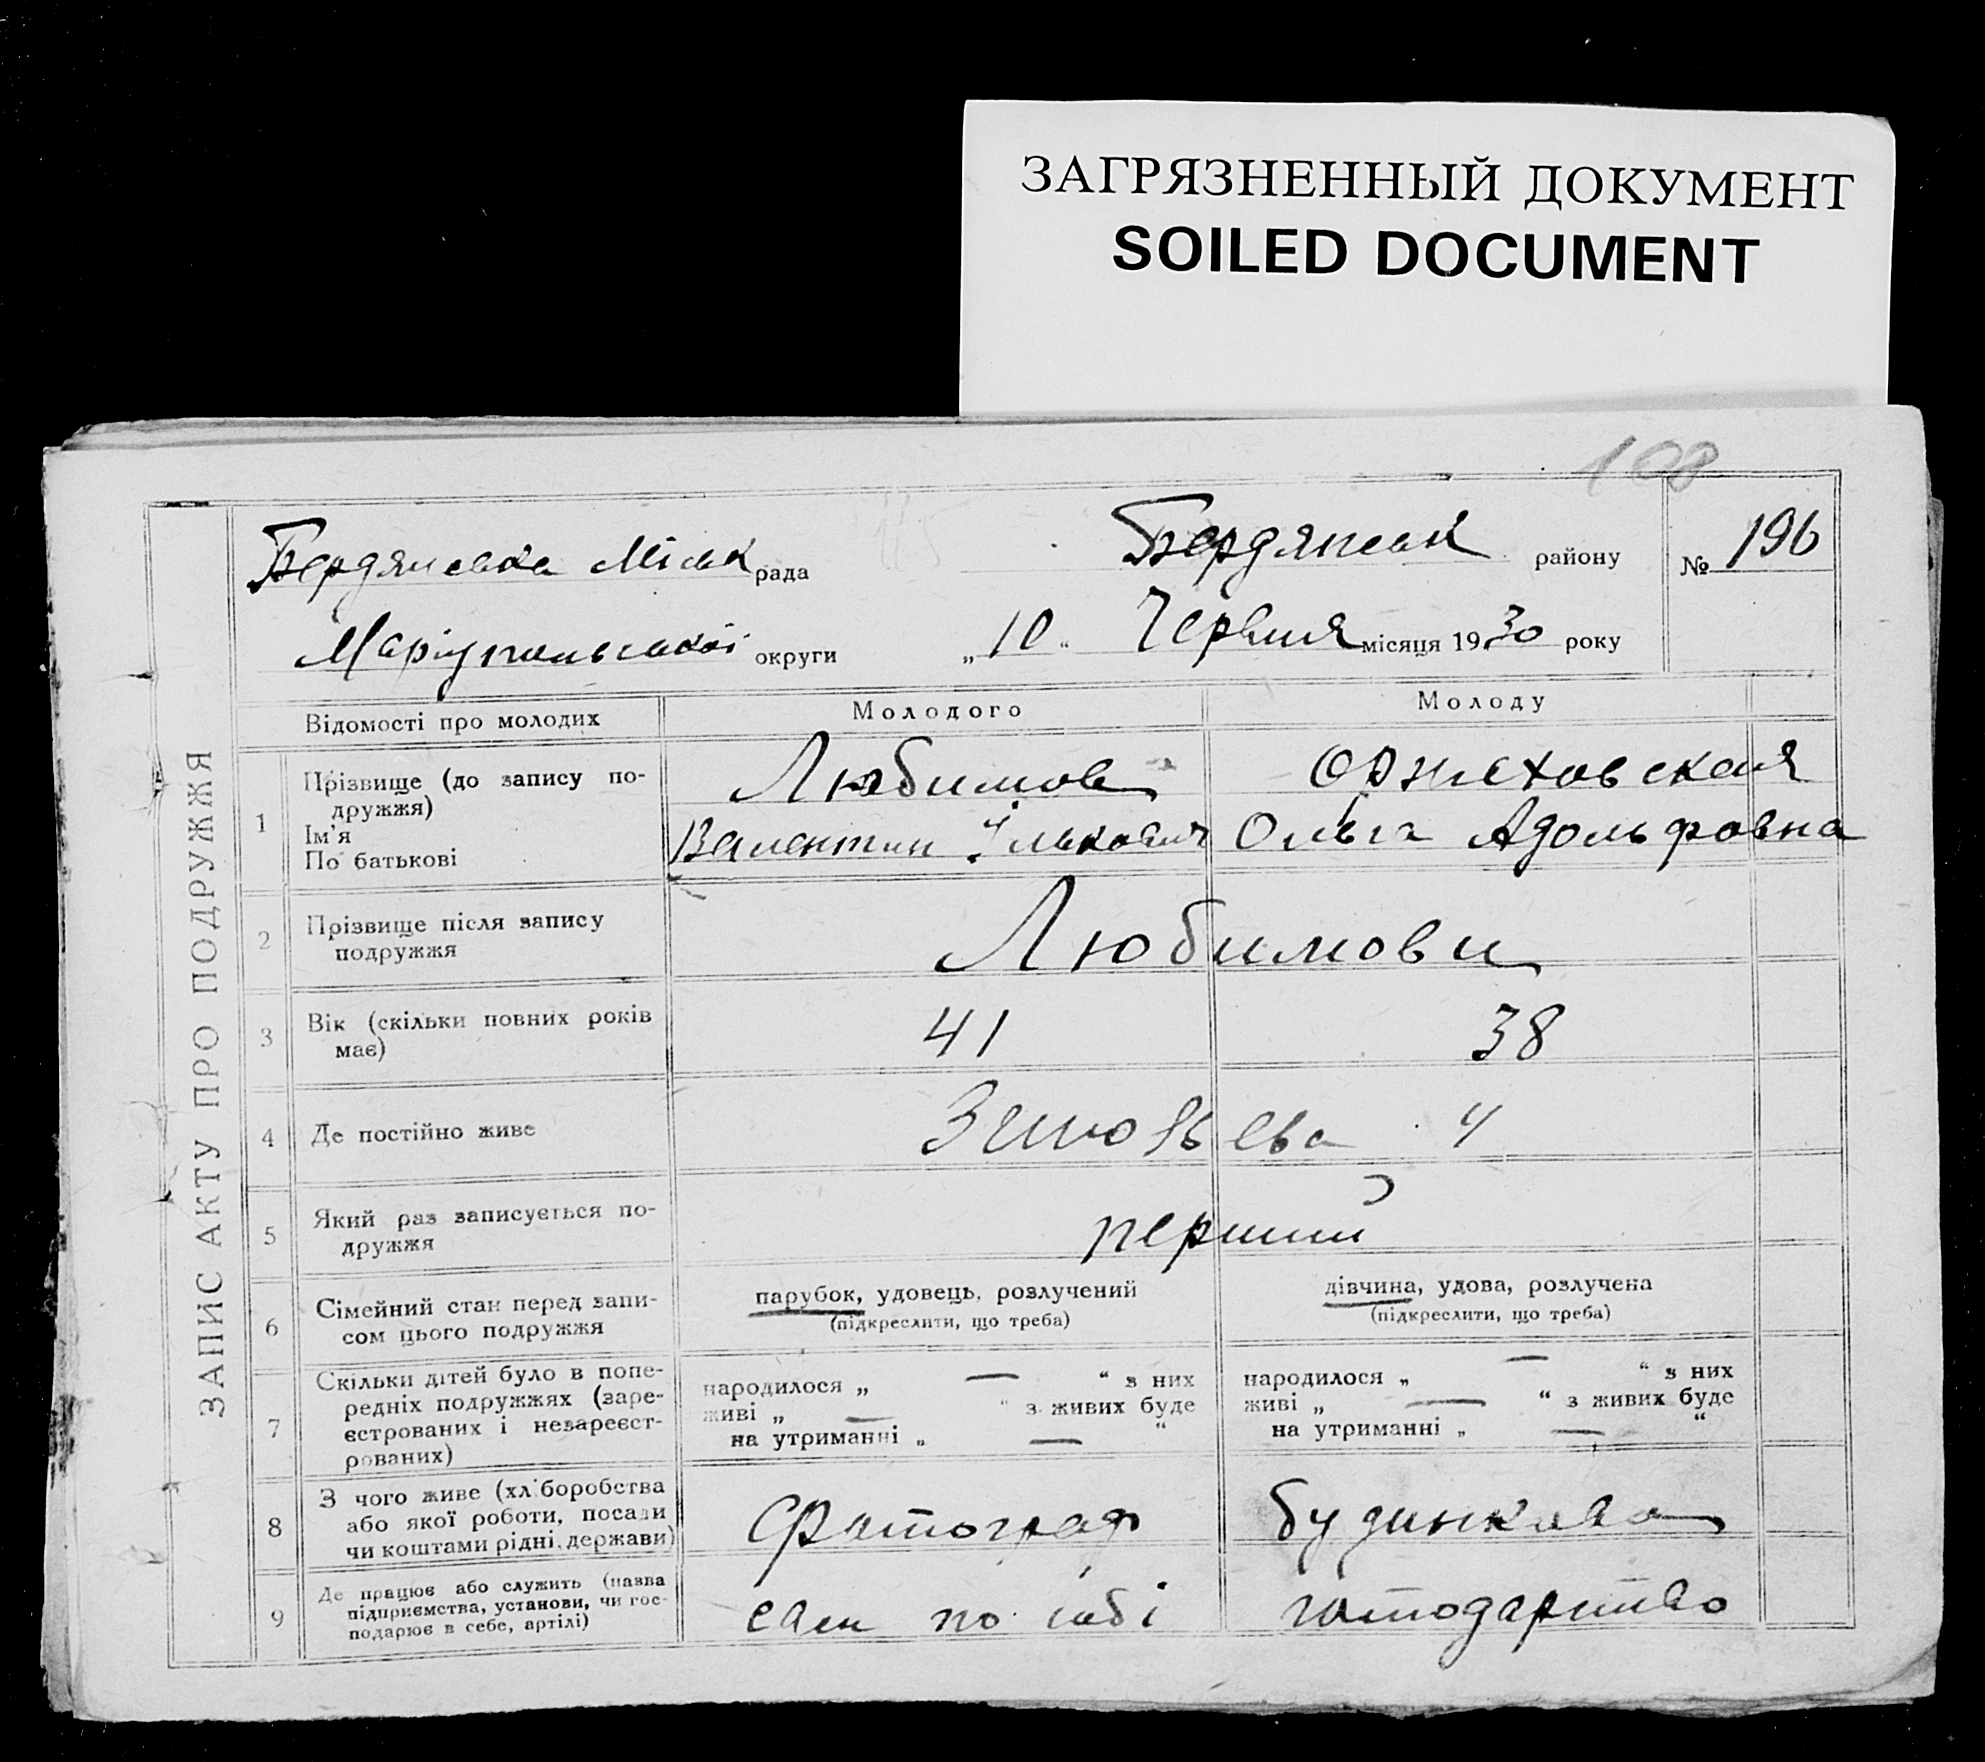 ЗАГРЯЗНЕННЫЙ ДОКУМЕНТ
SOILED DOCUMENT
108
115
Бердянська Міськ рада
Бердянськ району
№ 196
Маріупольської округи
„10“ Червня місяця 1930 року
ЗАПИС АКТУ ПРО ПОДРУЖЖЯ
Відомості про молодих
Молодого
Молоду
1
Прізвище (до запису по-
дружжя)
Ім'я
По батькові
Любимов
Валентин
Оржеховская
Ольга Адольфовна
2
Прізвище після запису
подружжя
Любимови
3
Вік (скільки повних років
має)
41
38
4
Де постійно живе
Зиновьева 4
5
Який раз записується по-
дружжя
перший
6
Сімейний стан перед запи-
сом цього подружжя
парубок, удовець, розлучений
(підкреслити, що треба)
дівчина, удова, розлучена
(підкреслити, що треба)
7
Скільки дітей було в попе-
редніх подружжях (заре-
єстрованих і незареєст-
рованих)
народилося „ — “ з них
живі „ — “ з живих буде
на утриманні „ — “
народилося „ — “ з них
живі „ — “ з живих буде
на утриманні „ — “
8
З чого живе (хліборобства
або якої роботи, посади
чи коштами рідні, держави)
Фотограф
будинкова
9
Де працює або служить (назва
підприємства, установи, чи гос-
подарює в себе, артілі)
сам по собі
господарство